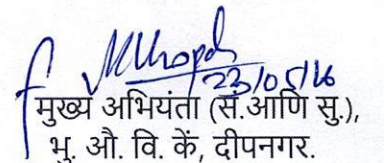 23/05/16
मुख्य अभियंता (सं.आणि सु.),
भु. औ. वि. कें, दीपनगर.